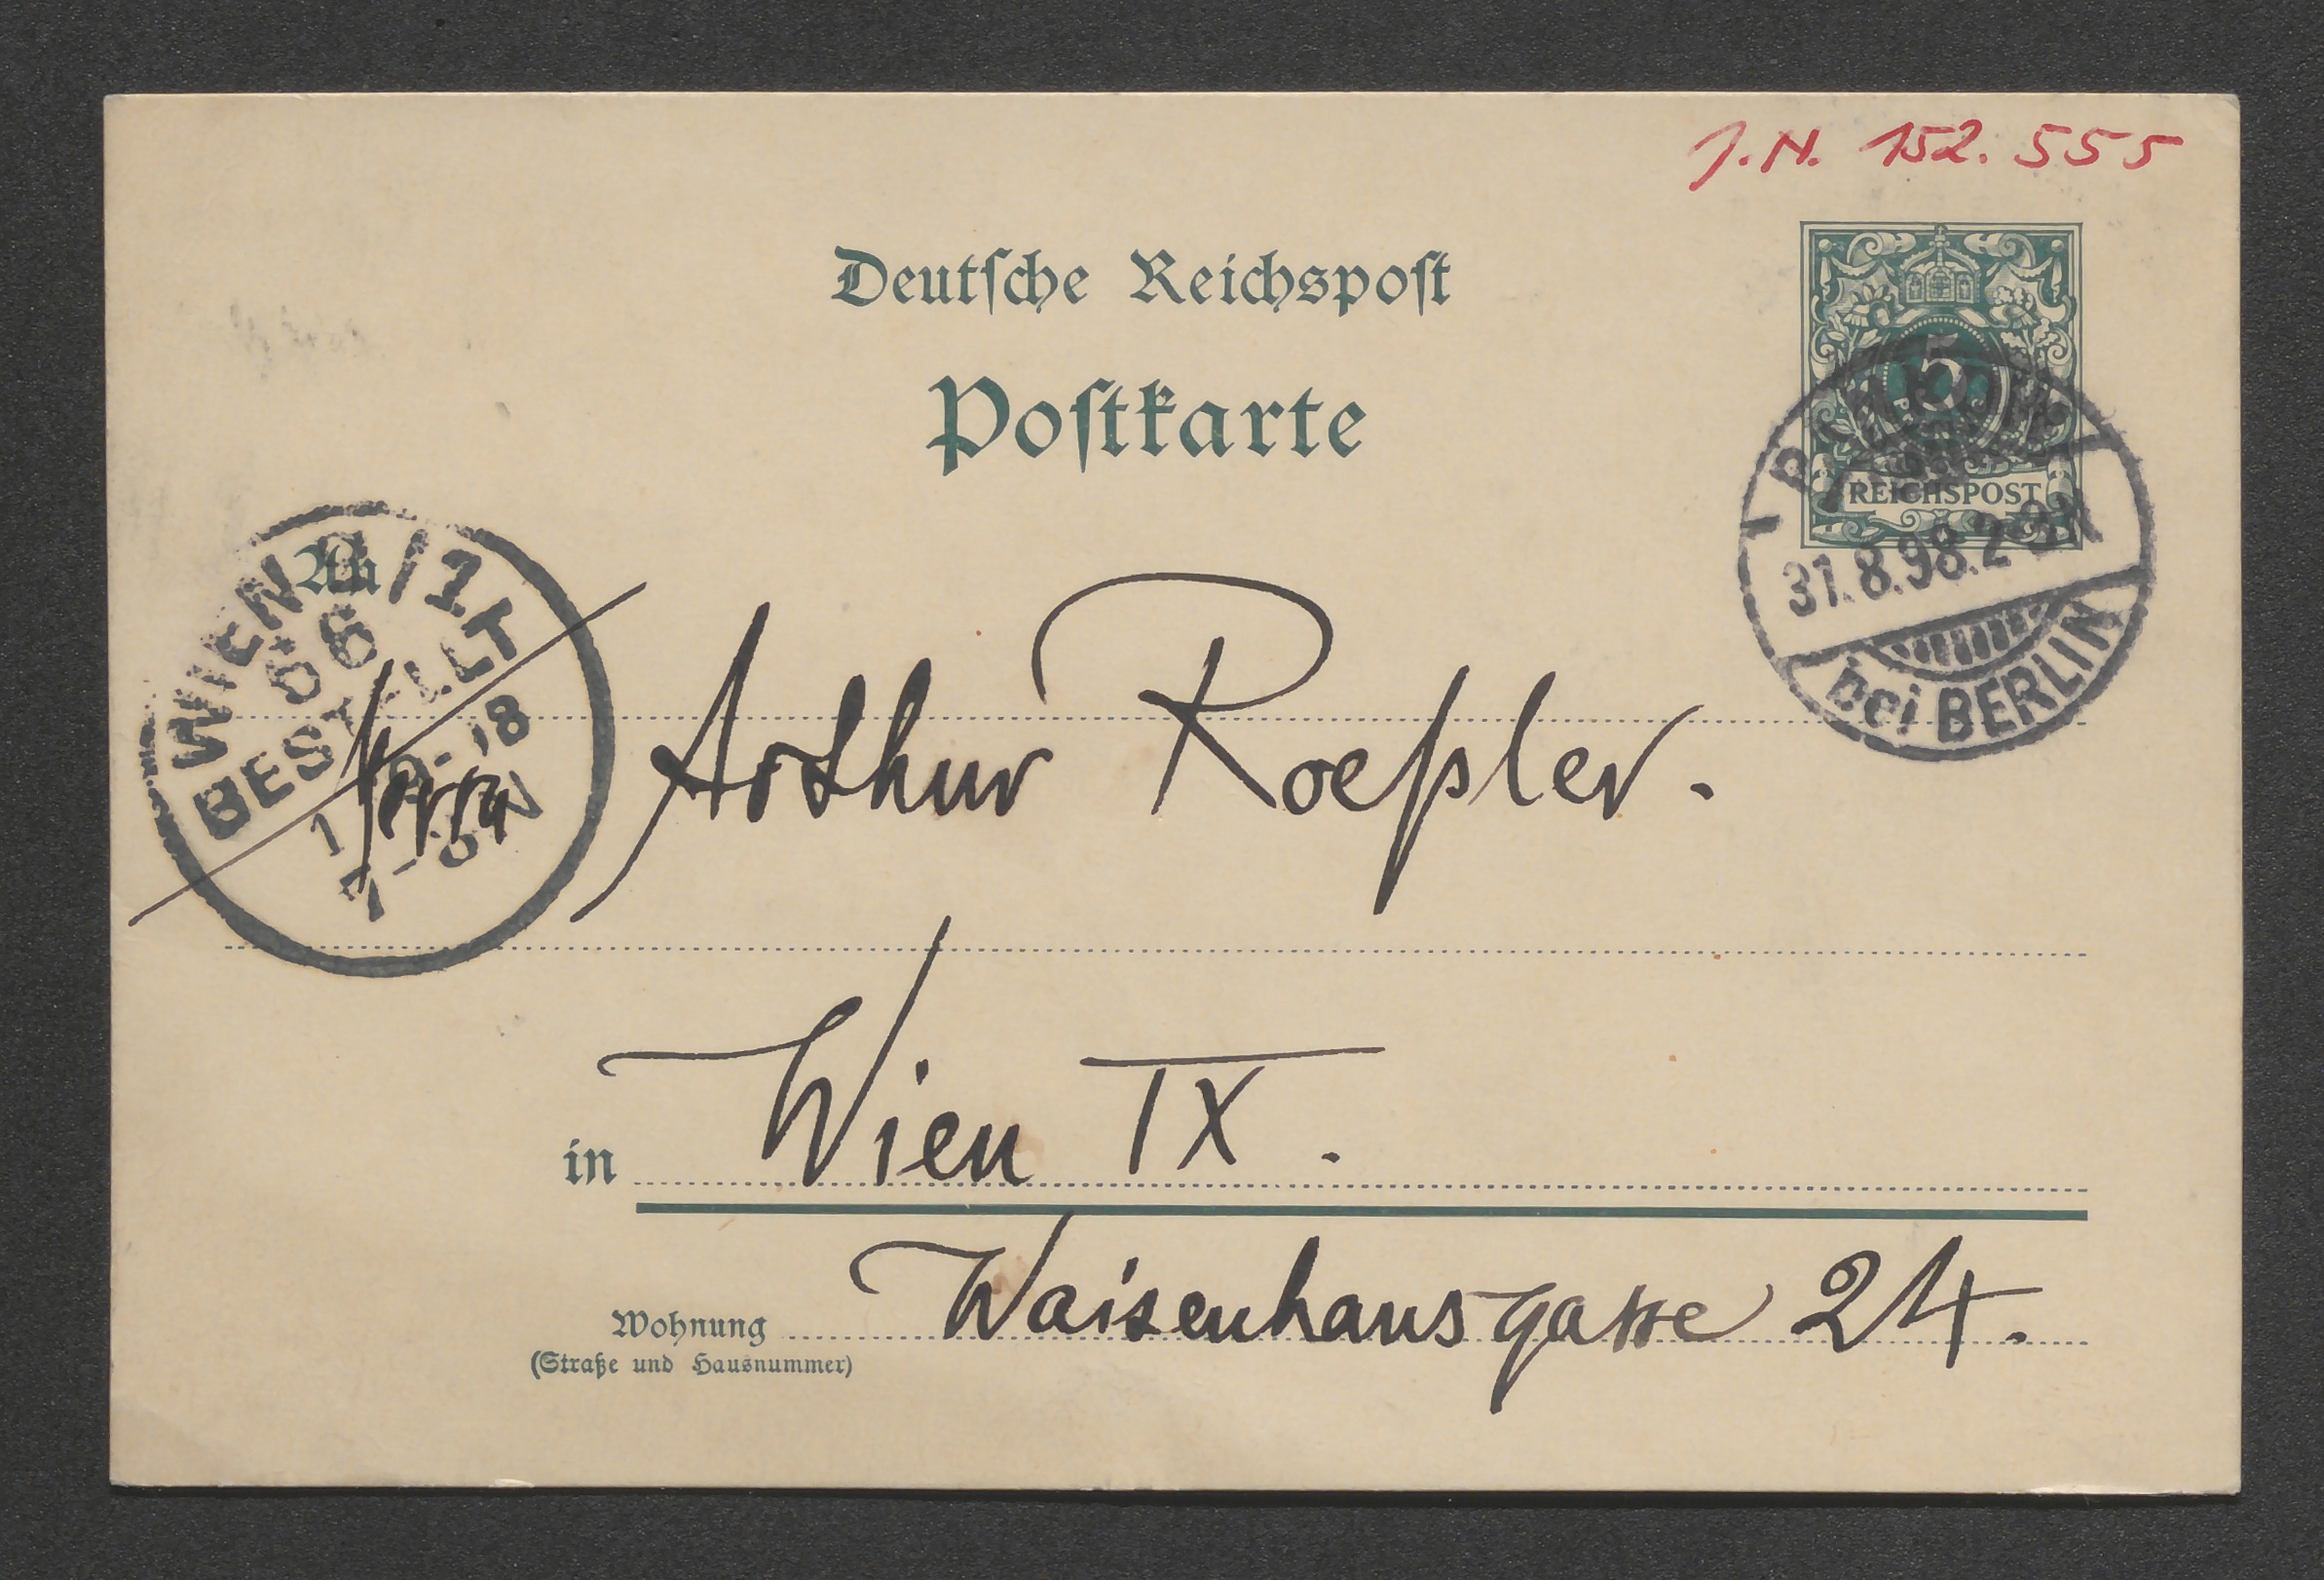 J.N. 152.555
Deutsche Reichspost
Postkarte
5
REICHSPOST
PANKOW
31.8.98. 2-3N
bei BERLIN
WIEN 9/1
66
BESTELLT
7-8 N
An
Herrn Arthur Roeßler.
in Wien IX.
Wohnung Waisenhausgasse 24.
(Straße und Hausnummer)